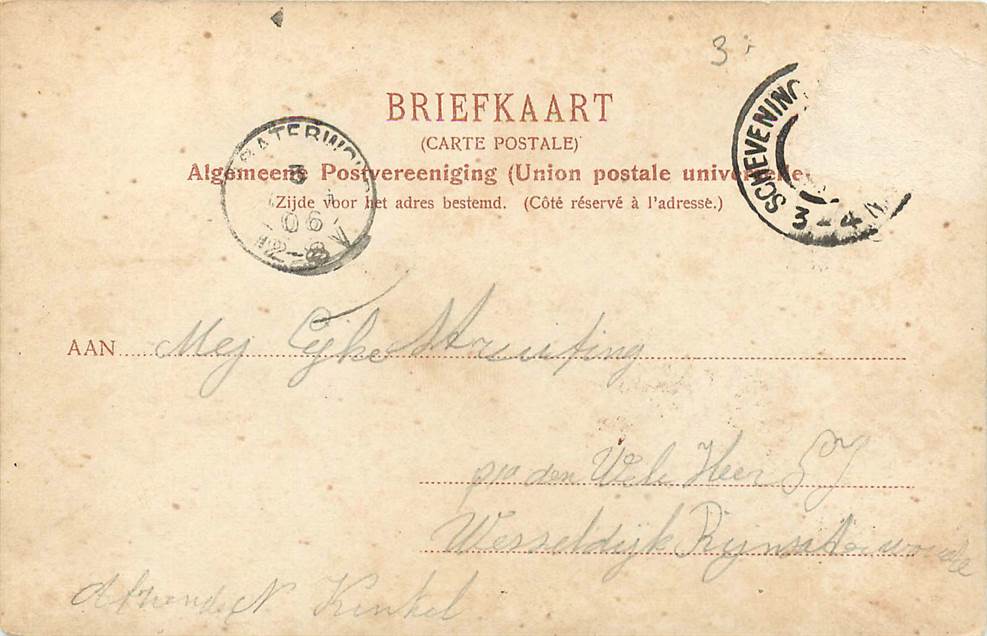 3
BRIEFKAART
(CARTE POSTALE)
Algemeene Postvereeniging (Union postale universelle)
Zijde voor het adres bestemd. (Côté réservé à l'adresse.)
SCHEVENING
3-4 N
RATERWO
3
06
12-8 V
AAN Mej Eijke Struiting
p/a den Wele Heer S J
Wesseldijk Rijnsaterwoude
Afzend. N. Kinkel